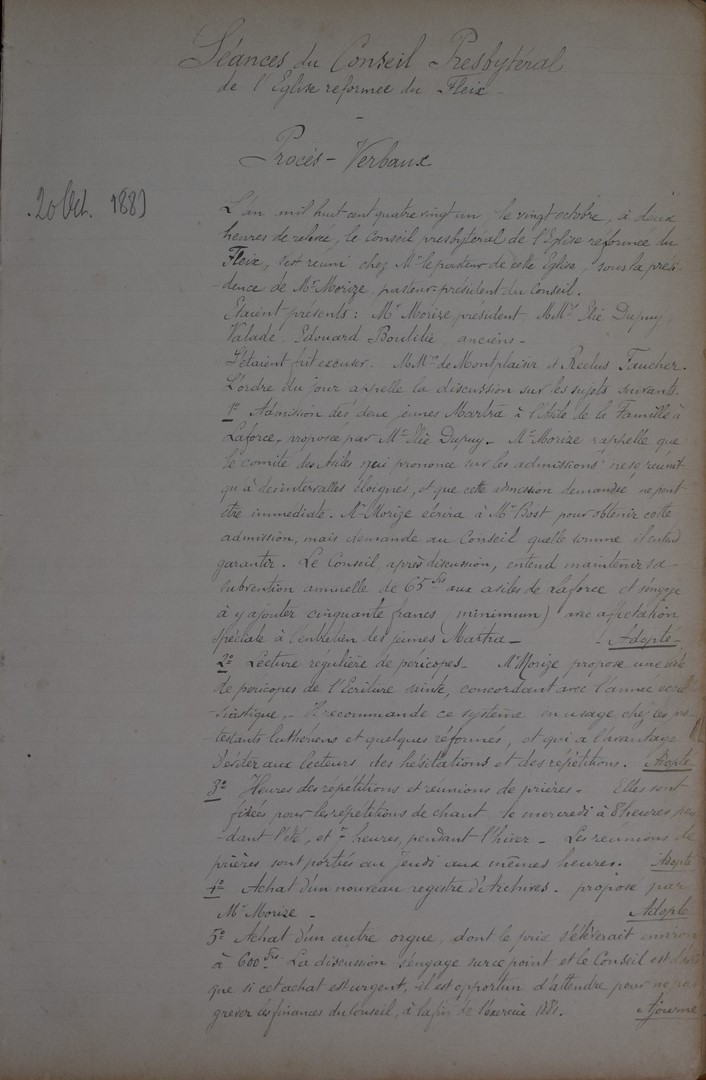 Séances du Conseil Presbytéral
de l'Eglise reformée du Fleix -
Procès-Verbaux
20 Oct. 1881
L'an mil huit cent quatre vingt un le vingt octobre, à deux
heures de relevée, le Conseil presbytéral de l'Eglise réformée du
Fleix, s'est reuni chez Mr le pasteur de cette Eglise, sous la prési-
dence de Mr Morize, pasteur-président du Conseil.
Etaient présents : Mr Morize président, MMrs Elie Dupuy,
Valade, Edouard Boutilié, anciens -
S'étaient fait excuser. MMrs de Montplaisir et Reclus Faucher.
L'ordre du jour appelle la discussion sur les sujets suivants.
1o Admission des deux jeunes Martra à l'Asile de la Famille à
Laforce, proposée par Mr Elie Dupuy - Mr Morize rappelle que
le comité des Asiles qui prononce sur les admissions ne se réunit
qu'à des intervalles éloignés, et que cette admission demandée ne peut
être immediate. Mr Morize écrira à Mr Bost pour obtenir cette
admission, mais demande au Conseil quelle somme il entend
garantir. Le Conseil, après discussion, entend maintenir sa
subvention annuelle de 65 frs aux asiles de Laforce et s'engage
à y ajouter cinquante francs (minimum) avec affectation
spéciale à l'entretien des jeunes Martra - Adopté -
2o Lecture régulière de péricopes - Mr Morize propose une série
de pericopes de l'Ecriture sainte, concordant avec l'année ecclé-
siastique, - Il recommande ce système en usage chez les pro-
testants luthériens et quelques réformés, et qui a l'avantage
d'éviter aux lecteurs des hésitations et des répétitions. Adopté
3o Heures des répétitions et reunions de prières - Elles sont
fixées pour les répétitions de chant le mercredi à 8 heures pen-
dant l'été, et 7 heures, pendant l'hiver - Les reunions de
prières sont portées au Jeudi aux mêmes heures. Adopté
4o Achat d'un nouveau registre d'Archives. proposé par
Mr Morize - Adopté
5o Achat d'un autre orgue, dont le prix s'élèverait environ
à 600 frs La discussion s'engage sur ce point et le Conseil est d'avis
que si cet achat est urgent, il est opportun d'attendre pour ne pas
grever les finances du Conseil, à la fin de l'exercice 1881. Ajourné